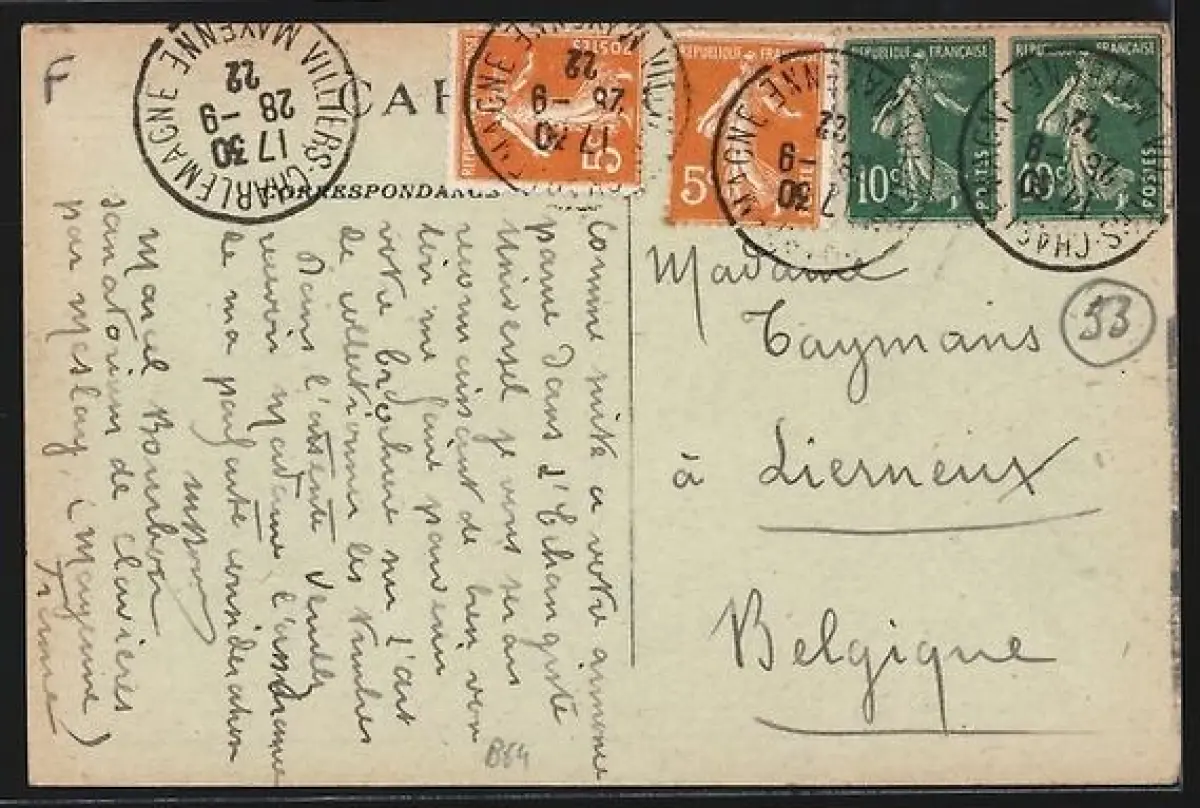 VILLIERS-CHARLEMAGNE MAYENNE
17 30
28 -9
22
CORRESPONDANCE
REPUBLIQUE FRANÇAISE
POSTES
5c
REPUBLIQUE FRANÇAISE
5c
REPUBLIQUE FRANÇAISE
10c
POSTES
REPUBLIQUE FRANÇAISE
10c
POSTES
Madame
Taymans
à Lierneux
Belgique
53
Comme suite a votre annonce
parue dans L'Echangiste
Universel je vous serais
reconnaissant de bien vou
loir me faire parvenir
votre brochure sur L'art
de collectionner les timbres
Dans l'attente veuillez
recevoir Madame, l'assurance
de ma parfaite considération
Marcel Bourbon
sanatorium de Clavières
par Meslay, (Mayenne)
France
B64